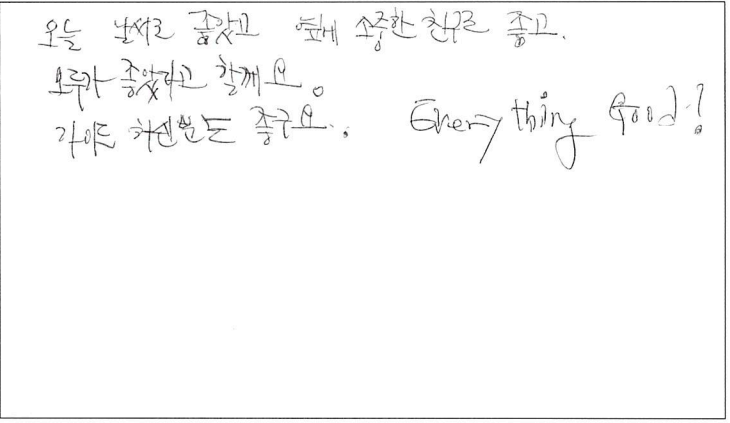 오늘 날씨도 좋았고 옆에 소중한 친구도 좋고.
모두가 좋았다고 할께요.
가이드 하신분도 좋구요.. Every thing Good!